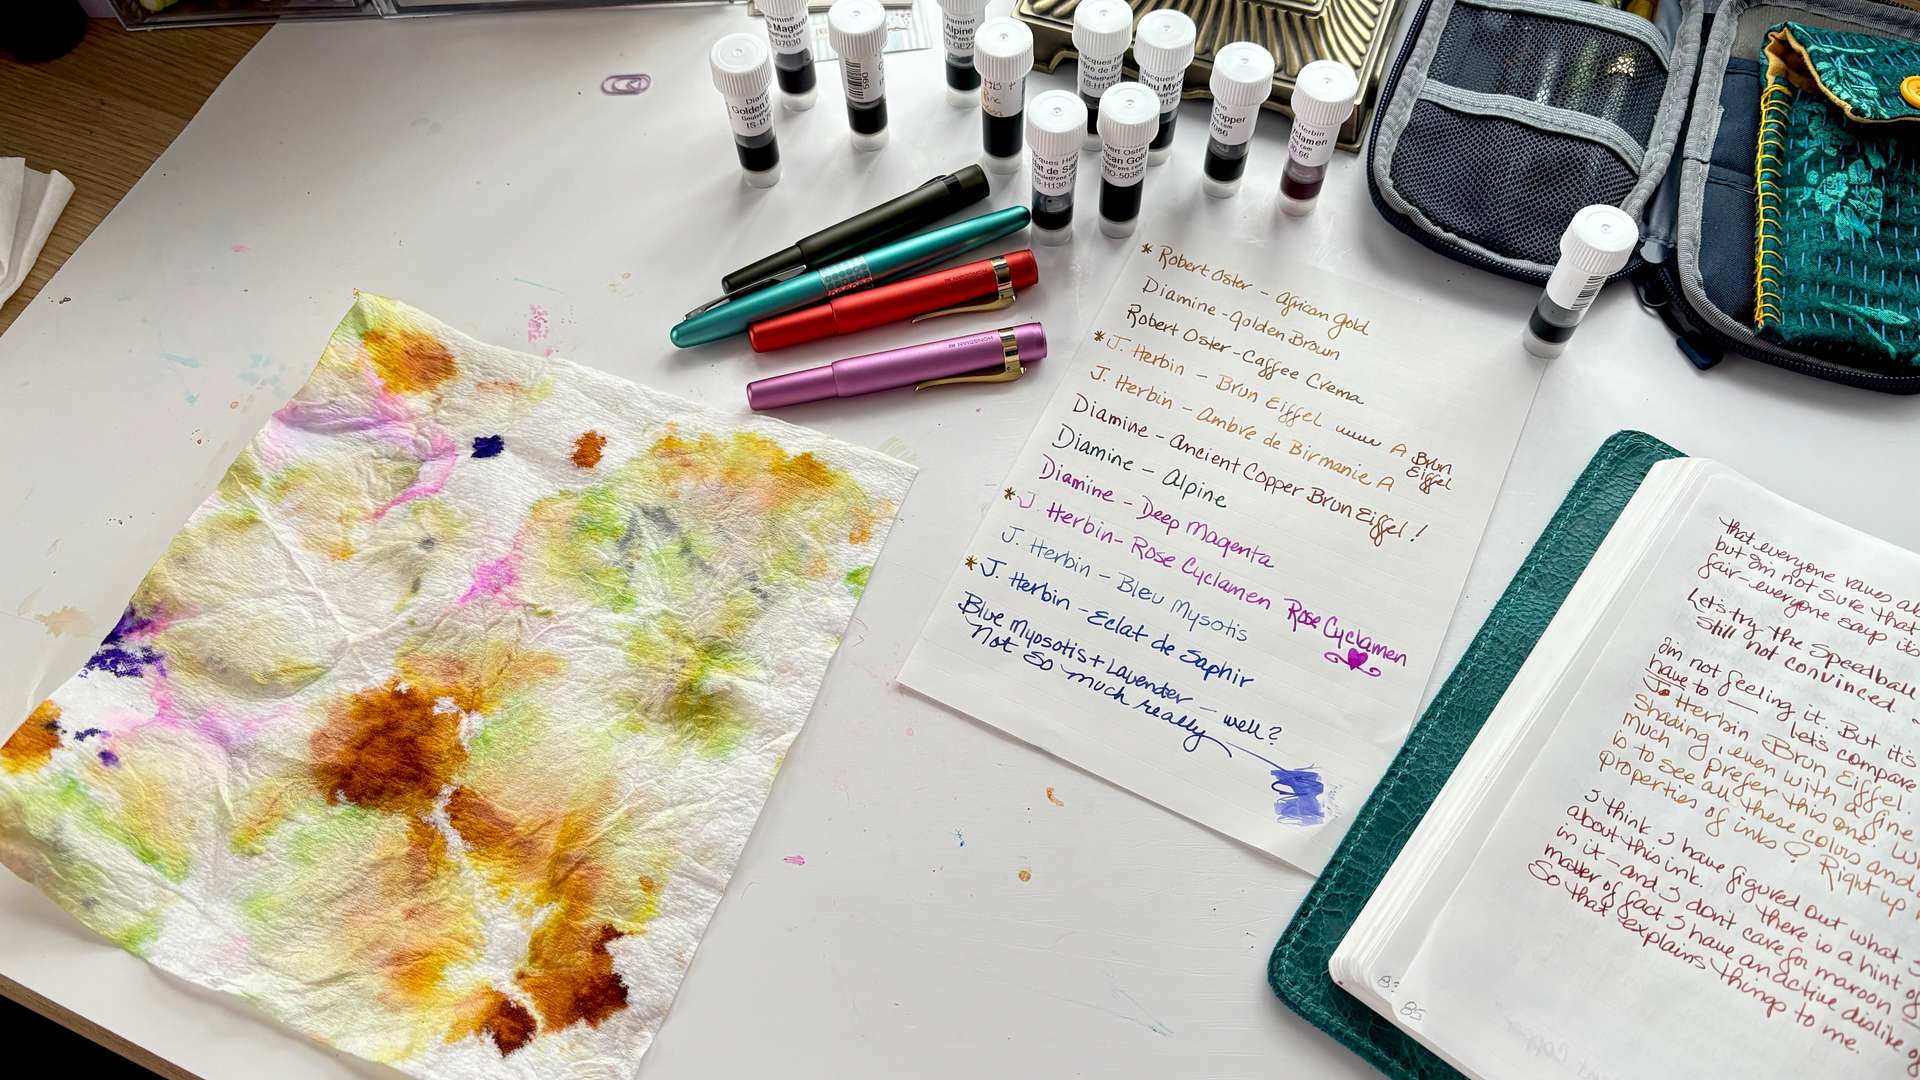 Magenta
D7030
Diamine
Alpine
GE22
Golden
GouletPens.com
Jacques
IS-H130
HB +
Jacques H
Bleu Myo
Copper
7086
Herbin
Jacques Her
at de Sap
GouletPens
IS-H130
bert Oster
can Gold
RO-50389
HONGDIAN
HONGDIAN
* Robert Oster - African Gold
Diamine - Golden Brown
Robert Oster - Caffee Crema
* J. Herbin - Brun Eiffel A Brun Eiffel
J. Herbin - Ambre de Birmanie A
Diamine - Ancient Copper Brun Eiffel!
Diamine - Alpine
Diamine - Deep Magenta
* J. Herbin - Rose Cyclamen Rose Cyclamen
J. Herbin - Bleu Mysotis
* J. Herbin - Eclat de Saphir
Blue Myosotis + Lavender - well?
Not so much really
that everyone raves ab
but I'm not sure that
fair - everyone says it's
Let's try the Speedball
Still not convinced -
I'm not feeling it. But it's
have to — let's compare
J. Herbin Brun Eiffel.
Shading, even with a fine
much prefer this one. W
is to see all these colors and
properties of inks? Right up
I think I have figured out what I
about this ink. there is a hint of
in it - and I don't care for maroon
matter of fact I have an active dislike of
So that explains things to me.
83
85